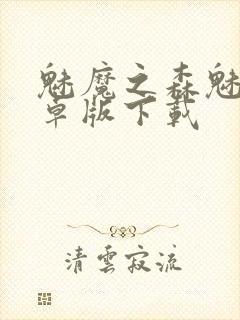 魅魔之森魅
卓版下載
清雲寂流